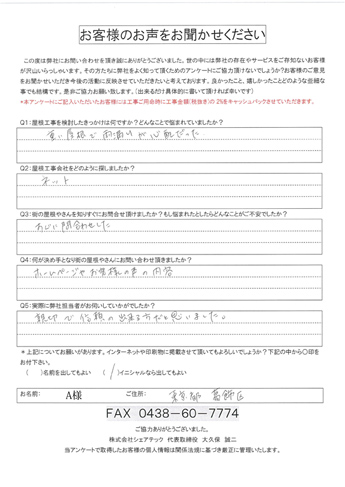 お客様のお声をお聞かせください
この度は弊社にお問い合わせを頂き誠にありがとうございました。世の中には弊社の存在やサービスをご存知ないお客様
が沢山いらっしゃいます。その方たちに弊社をよく知って頂くためのアンケートにご協力頂けないでしょうか?お客様のご意見
をお聞かせいただき今後の活動に反映させていただきたいと考えております。良かったこと、嬉しかったことのような些細な
事でも結構です。是非ご協力お願い致します。(出来るだけ具体的に書いて頂ければ幸いです)
*本アンケートにご記入いただいたお客様には工事ご用命時に工事金額(税抜き)の 2%をキャッシュバックさせていただきます。
Q1:屋根工事を検討したきっかけは何ですか?どんなことで悩まれていましたか?
重い屋根で雨漏りが心配だった
Q2:屋根工事会社をどのように探しましたか?
ネット
Q3:街の屋根やさんを知りすぐにお問合せ頂けましたか?もし悩まれたとしたらどんなことがご不安でしたか?
すぐに問合わせした
Q4:何が決め手となり街の屋根やさんにお問い合わせ頂きましたか?
ホームページやお客様の声の内容
Q5:実際に弊社担当者がお伺いしていかがでしたか?
親切で信頼の出来る方だと思いました。
*上記についてお願いがあります。インターネットや印刷物に掲載させて頂いてもよろしいでしょうか?下記の中から○印を
お付け下さい。
( )名前を出してもよい ( / )イニシャルなら出してもよい
お名前: A様 ご住所: 東京都 葛飾区
FAX 0438-60-7774
ご協力ありがとうございました。
株式会社シェアテック 代表取締役 大久保 誠二
当アンケートで取得したお客様の個人情報は関係法規に基づき厳正に管理いたします。